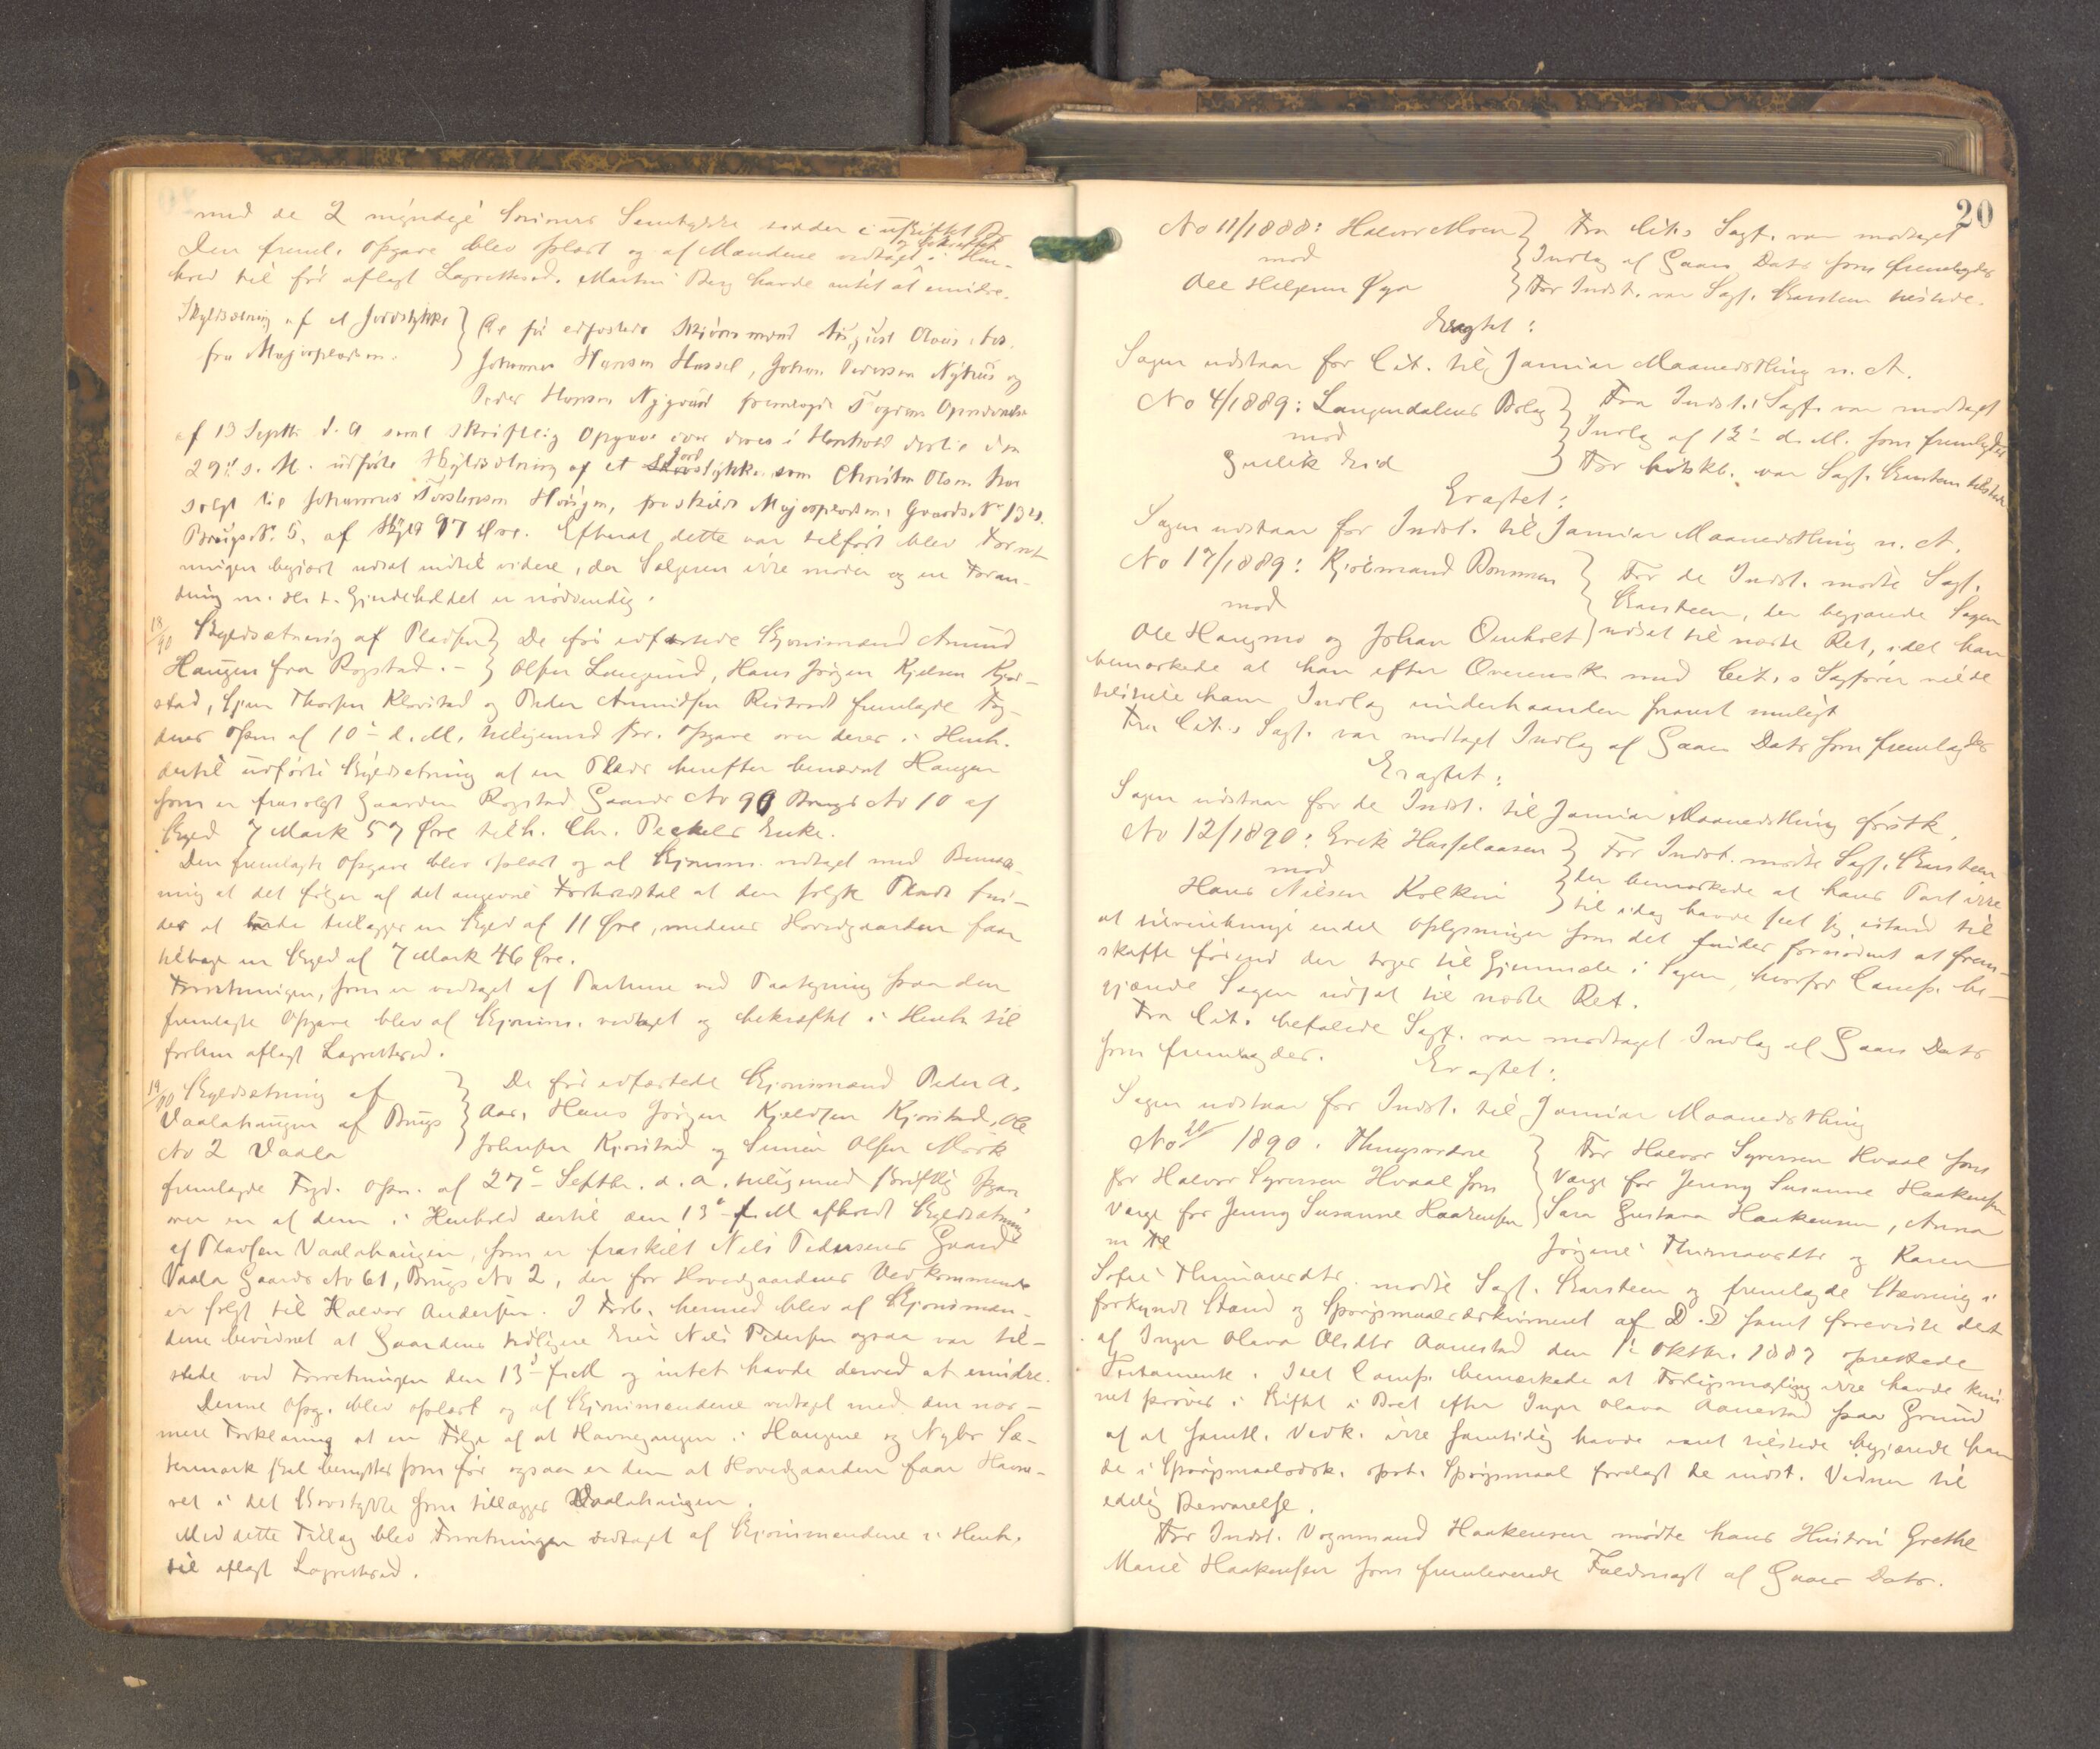 med de 2 myndige Sønners Samtykke sender i udskiftet Bo
Den freml. Opgave blev oplæst og af Mændene vedtaget i Hen-
og bekræftet
hold til før aflagt Lagretteed. Martin Berg havde intet at erindre.
Skyldsætning af et Jordstykke
fra Majorpladsen.
De før edfæstede Skjønsmænd August Olaus Aas,
Johannes Hansen Hassel, Johan Pedersen Nyhus og
Peder Hansen Nygaard fremlagde Fogdens Opnævnelse
af 13 Septb. d. A samt skriftlig Opgave over deres i Henhold dertil den
29de s. M. udførte Skyldsætning af et Jordstykke som Christen Olsen har
solgt til Johannes Torstensen Haugen, fraskilt Majorpladsen, Gaards No 13
Brugs No. 5, af Skyld 97 Øre. Efterat dette var tilført blev Forret-
ningen begjært udsat indtil videre, da Sælgeren ikke møder og en Foran-
dring m. H. t. Gjerdeholdet er nødvendig.
18/90 Skyldsætning af Pladsen
Haugen fra Rogstad. -
De før edfæstede Skjønsmænd Amund
Olsen Langrund, Hans Jørgen Kjelsen Kjør-
stad, Ejner Thorsen Kløvstad og Peder Amundsen Ristvedt fremlagde Fog-
dens Opn af 10de d. M. tilligemed skr. Opgave over deres i Henh.
dertil udførte Skyldsætning af en Plads herefter benævnt Haugen
som er frasolgt Gaarden Rogstad Gaards No 90 Brugs No 10 af
Skyld 7 Mark 57 Øre tilh. Chr. Peckels Enke.
Den fremlagte Opgave blev oplæst og af Skjønsm. vedtaget med Bemærk-
ning at det følger af det angivne Forholdstal at den solgte Plads fin-
des at burde tillægges en Skyld af 11 Øre, medens Hovedgaarden faar
tilbage en Skyld af 7 Mark 46 Øre.
Forretningen, som er vedtaget af Parterne ved Paategning paa den
fremlagte Opgave blev af Skjønsm. vedtaget og bekræftet i Henh til
forhen aflagt Lagretteed.
19/90 Skyldsætning af
Vaalahaugen af Brugs
No 2 Vaala
De før edfæstede Skjønsmænd Peder A.
Aas, Hans Jørgen Kjeldsen Kjørstad, Ole
Johnsen Kjørstad og Simen Olsen Mørk
fremlagde Fogd. Opn. af 27de Septbr. d. A. tilligemed skriftlig Opgave
over en af dem i Henhold dertil den 13de f. M afholdt Skyldsætning
af Pladsen Vaalahaugen, som er fraskilt Nils Pedersens Gaard
Vaala Gaards No 61, Brugs No 2, der for Hovedgaardens Vedkommende
er solgt til Halvor Andersen. I Forb. hermed blev af Skjønsmæn-
dene bevidnet at Gaardens tidligere Eier Nils Pedersen ogsaa var til-
stede ved Forretningen den 13de f. M og intet havde derved at erindre.
Denne Opg. blev oplæst og af Skjønsmændene vedtaget med den nær-
mere Forklaring at en Følge af at Havnegangen i Haugene og Nybr Sæ-
termark skal benyttes som før ogsaa er den at Hovedgaarden faar Havne-
ret i det Skovstykke som tillægges Vaalahaugen.
Med dette Tillæg blev Forretningen vedtaget af Skjønsmændene i Henh.
til aflagt Lagretteed.
20
No 11/1888: Halvor Moen
mod
Ole Helgesen Øya
Fra Cit.s Sagf. var modtaget
Indlæg af Gaars Dato som fremlagdes
For Indst. var Sagf. Karsteen tilstede.
Eragtet:
Sagen udstaar for Cit. til Januar Maanedsthing n. A.
No 4/1889: Langendalens Bolag
mod
Gullik Eid
Fra Indst.s Sagf. var modtaget
Indlæg af 12te d. M. som fremlagdes
For Citskt. var Sagf. Karsteen tilstede
Eragtet:
Sagen udstaar for Indst. til Januar Maanedsthing n. A.
No 17/1889: Kjøbmand Bonnman
mod
Ole Haugmo og Johan Omholt
For de Indst. mødte Sagf.
Karsteen, der begjærede Sagen
udsat til næste Ret, idet han
bemærkede at han efter Overensk. med Cit.s Sagfører vilde
tilstille ham Indlæg underhaanden snarest muligt
Fra Cit.s Sagf. var modtaget Indlæg af Gaars Dato som fremlagdes
Eragtet:
Sagen udstaar for de Indst. til Januar Maanedsthing førstk.
No 12/1890: Erik Hasselaasen
mod
Hans Nilsen Kolkin
For Indst. mødte Sagf. Karsteen
der bemærkede at hans Part ikke
til idag havde seet sig istand til
at tilveiebringe endel Oplysninger som det findes fornødent at frem-
skaffe førend der tages til Gjenmæle i Sagen, hvorfor Comp. be-
gjærede Sagen udsat til næste Ret.
Fra Cit. befalede Sagf. var modtaget Indlæg af Gaars Dato
som fremlagdes.
Eragtet:
Sagen udstaar for Indst. til Januar Maanedsthing
No 20/1890. Thingsvidne
for Halvor Syversen Hvaal som
Værge for Jenny Susanne Haakensen
m fl
For Halvor Syversen Hvaal som
Værge for Jenny Susanne Haakensen
Sara Gustava Haakensen, Anna
Jørgine Thomasdtr og Karen
Sofie Thomasdtr. mødte Sagf. Karsteen og fremlagde Stævning i
forkyndt Stand og Spørgsmaalsdokument af D. D samt foreviste det
af Inger Olava Olsdtr Aanestad den 1ste Oktbr. 1887 oprettede
Testamente. Idet Comp. bemærkede at Forligsmægling ikke havde kun-
net prøves i Skiftet i Boet efter Inger Olava Aanestad paa Grund
af at samtl. Vedk. ikke samtidig havde været tilstede begjærede han
de i Spørgsmaalsdok. opst. Spørgsmaal forelagt de indst. Vidner til
edelig Besvarelse.
For Indst. Vognmand Haakensen mødte hans Hustru Grethe
Marie Haakensen som fremleverede Fuldmagt af Gaars Dato.